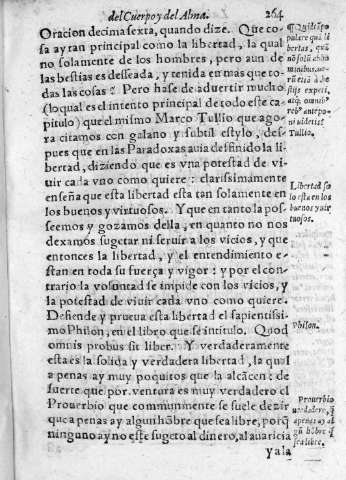 del Cuerpo y del Alma. 264
Oracion decima sexta, quando dize. Que co-
sa ay tan principal como la libertad, la qual
no solamente de los hombres, pero aun de
las bestias es desseada, y tenida en mas que to-
das las cosas? Pero hase de aduertir mucho
(lo qual es el intento principal de todo este ca-
pitulo) que el mismo Marco Tullio que ago-
ra citamos con galano y subtil estylo, des-
pues que en las Paradoxas auia definido la li-
bertad, diziendo que es vna potestad de vi-
uir cada vno como quiere: clarissimamente
enseña que esta libertad esta tan solamente en
los buenos y virtuosos. Y que en tanto la pos-
seemos y gozamos della, en quanto no nos
dexamos sugetar ni seruir a los vicios, y que
entonces la libertad, y el entendimiento e-
stan en toda su fuerça y vigor: y por el con-
trario la voluntad se impide con los vicios, y
la potestad de viuir cada vno como quiere.
Defiende y prueua esta libertad el sapientissi-
mo Philon, en el libro que se intitulo. Quod
omnis probus sit liber. Y verdaderamente
esta es la solida y verdadera libertad, la qual
a penas ay muy poquitos que la alcãcen: de
fuerte que por ventura es muy verdadero el
Prouerbio que communmente se suele dezir
que a penas ay algun hõbre que sea libre, porq̃
ninguno ay no este sugeto al dinero, al auaricia
y a la
Libertad so
lo esta en los
buenos y vir
tuosos.
Philon.
Prouerbio
verdadero, q̃
apenas ay al
gũ hõbre q̃
sea libre.